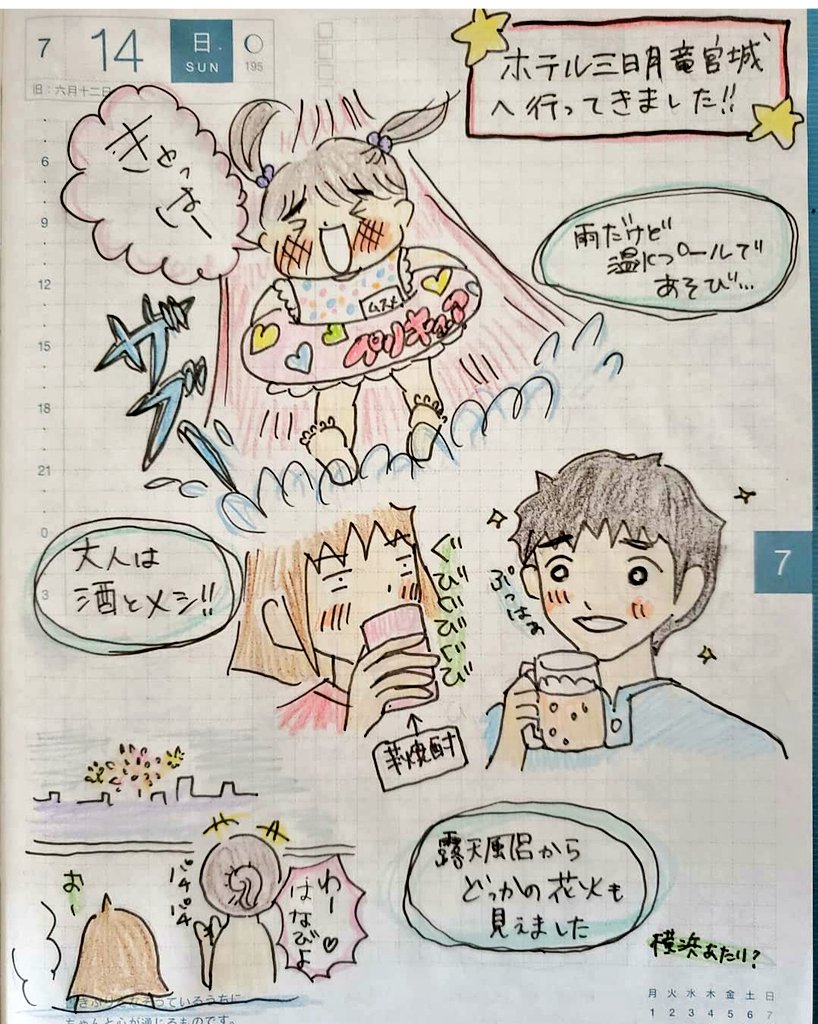 7 14 日 SUN
195
旧：六月十二日
ホテル三日月竜宮城
へ行ってきました!!
きゃっはー
雨だけど
温水プールで
あそび…
ムスメ
プリキュア
ザブーン
6
9
12
15
18
21
0
3
7
大人は
酒とメシ!!
ぐびぐびぐび
ぷっはぁ
芋焼酎
おー
パチパチ
わー♡
はなびよ
露天風呂から
どっかの花火も
見えました
横浜あたり?
っているうちに
ちゃんと心が通じるものです。
月 火 水 木 金 土 日
1 2 3 4 5 6 7